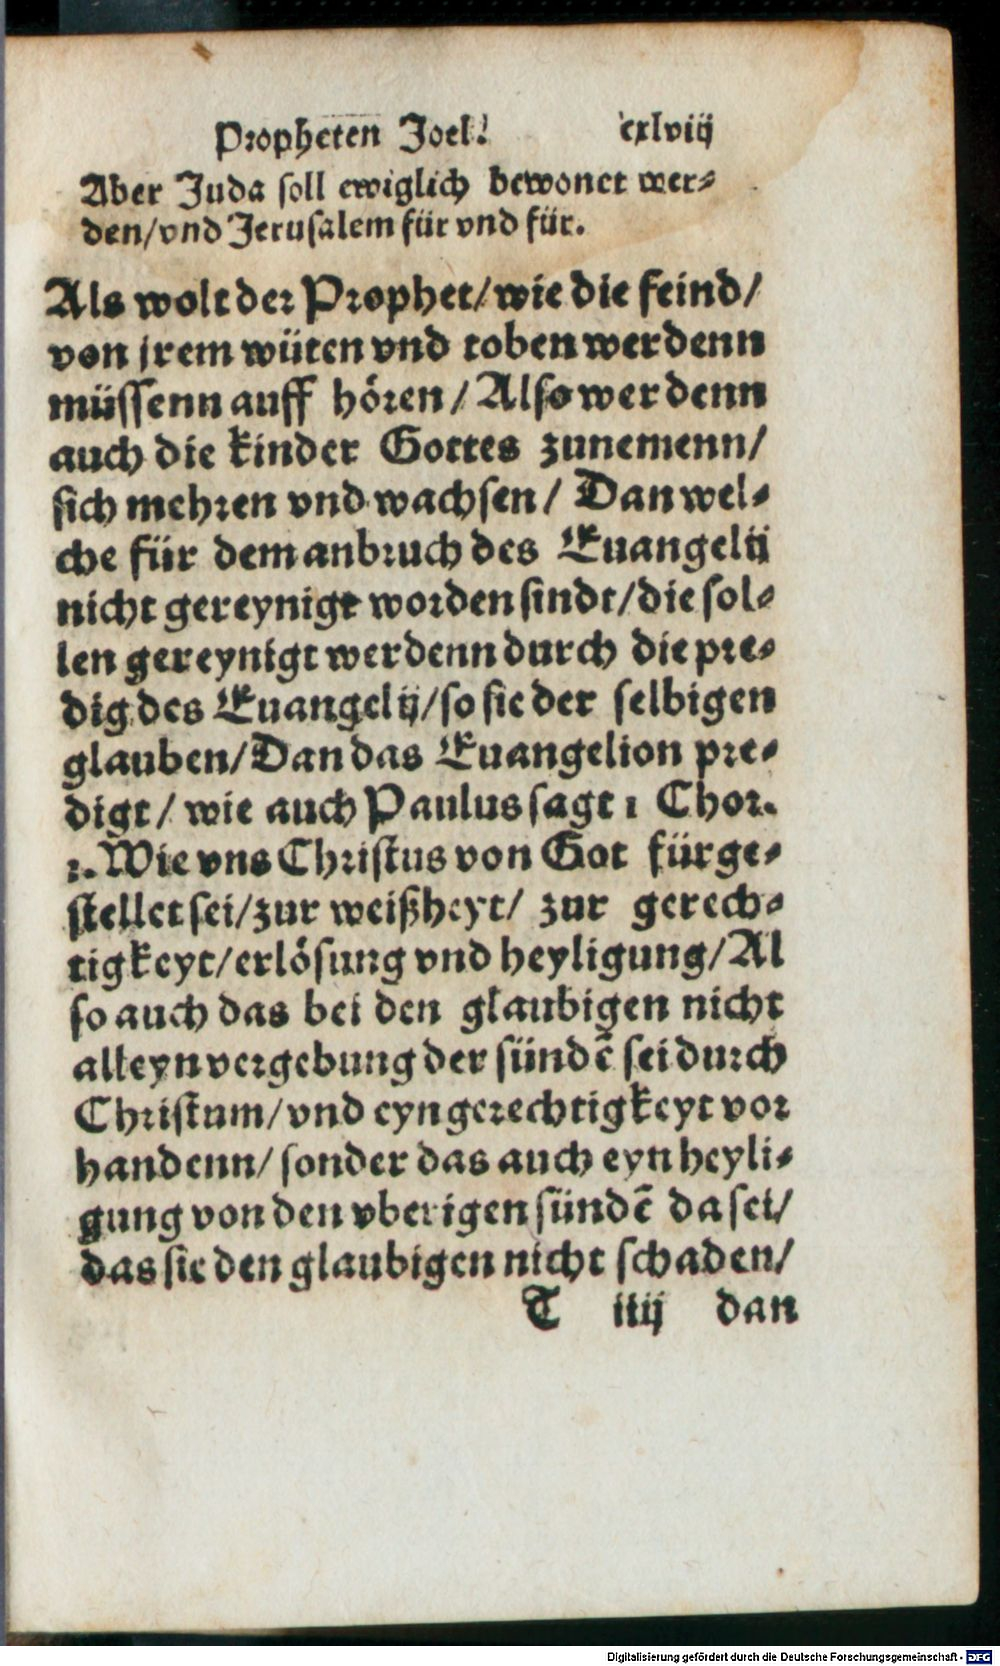 Propheten Joel. cxlviij
Aber Juda soll ewiglich bewonet wer⸗
den/vnd Jerusalem für vnd für.
Als wolt der Prophet/wie die feind/
von jrem wüten vnd toben werdenn
müssenn auff hören/Also werdenn
auch die kinder Gottes zunemenn/
sich mehren vnd wachsen/Dan wel⸗
che für dem anbruch des Euangelij
nicht gereynigt worden sindt/die sol⸗
len gereynigt werdenn durch die pre⸗
dig des Euangelij/so sie der selbigen
glauben/Dan das Euangelion pre⸗
digt/wie auch Paulus sagt 1 Chor.
1. Wie vns Christus von Got fürge⸗
stellet sei/zur weißheyt/zur gerech⸗
tigkeyt/erlösung vnd heyligung/Al
so auch das bei den glaubigen nicht
alleyn vergebung der sündē sei durch
Christum/vnd eyn gerechtigkeyt vor
handenn/sonder das auch eyn heyli⸗
gung von den vberigen sündē da sei/
das sie den glaubigen nicht schaden/
T iiij dan
Digitalisierung gefördert durch die Deutsche Forschungsgemeinschaft - DFG